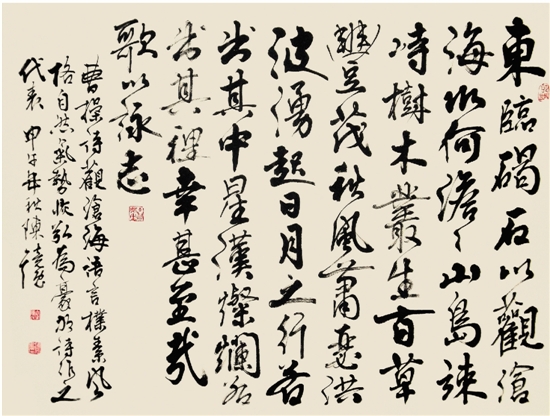 東臨碣石以觀滄
海水何澹〻山島竦
峙樹木叢生百草
豐茂秋風蕭瑟洪
波湧起日月之行若
出其中星漢燦爛若
出其裡幸甚至哉
歌以詠志
曹操詩觀滄海語言樸素風
格自然氣勢恢弘為豪放詩作之
代表 甲午年秋陳